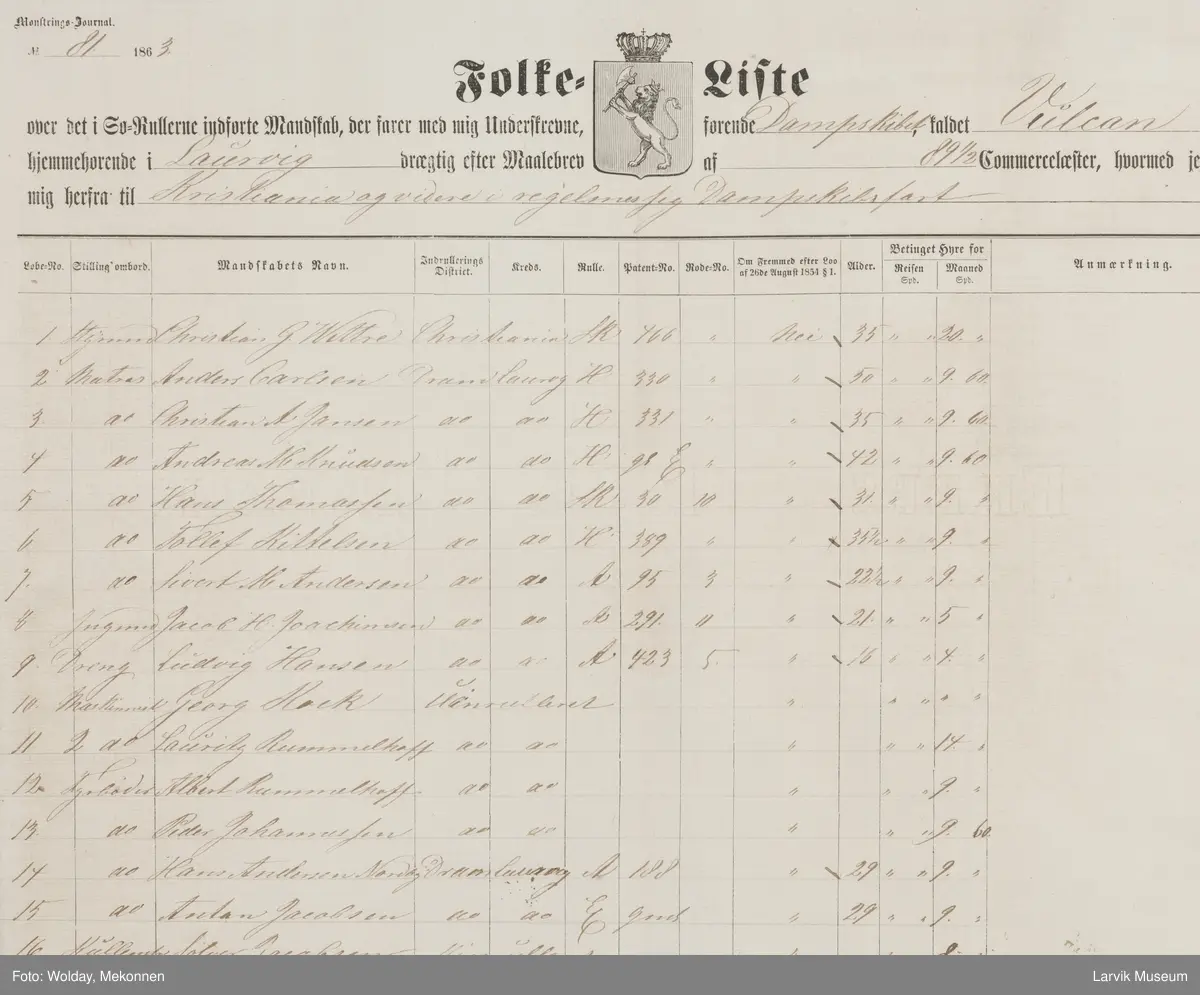 Monstrings-Journal.
№ 81 1863.
Folke- Liste
over det i Sø-Rullerne indførte Mandskab, der farer med mig Underskrevne, førende Dampskibet, kaldet Vulcan
hjemmehørende i Laurvig drægtig efter Maalebrev af 89 1/2 Commercelæster, hvormed je
mig herfra til Kristiania og videre i regelmessig Dampskibsfart
Løbe-No. Stilling ombord. Mandskabets Navn. Indrullerings District. Kreds. Rulle. Patent-No. Rode-No. Om Fremmed efter Lov af 26de August 1854 § 1. Alder. Betinget Hyre for Reisen Spd. Maaned Spd. Anmærkning.
1 Styrmd Christian G Wiltre Christiania SK 466 " Nei 35 " " 20. "
2 Matros Anders Carlsen Dram Laurvg H 330 " " 50 " " 9. 60.
3. do Christian A Jansen do do H 331 " " 35 " " 9. 60.
4 do Andreas M Knudsen do do H 98 E " " 42 " " 9. 60
5 do Hans Thomassen do do SK 30 10 " 31. " " 9. "
6 do Tollef Kittelsen do do H. 389 " " 35 1/2 " " 9. "
7. do Sivert M Andersen do do A 95 3 " 22 1/2 " " 9. "
8 Jugmd Jacob H Joachimsen do do A 291. 11 " 21. " " 5 "
9. Dreng Ludvig Hansen do do A 423 5. " 16 " " 4. "
10. Maskinmest Georg Rock Uinrulleret " " " " "
11 2 do Lauritz Rummelhoff do do " " " 14. "
12. Fyrbøder Albert Rummelhoff do do " " " 9. "
13. do Peder Johannessen do do " " " 9. 60.
14 do Hans Andersen Dram Laurvg A 188 " 29 " " 9. "
15 do Anton Jacobsen do do E " 29 " " 9. "
16
Foto: Wolday, Mekonnen
Larvik Museum